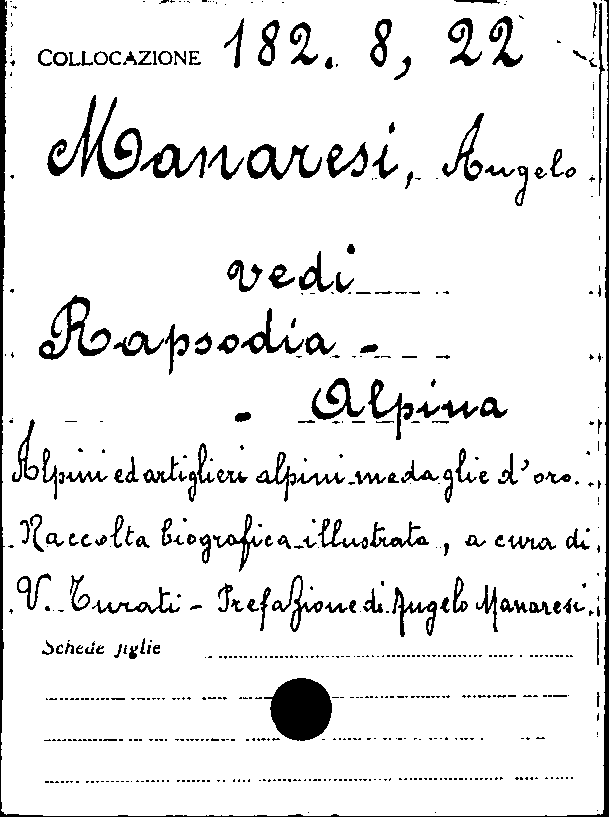 COLLOCAZIONE 182. 8, 22
Manaresi, Angelo
vedi
Rapsodia -
- Alpina
Alpini ed artiglieri alpini medaglie d'oro.
Raccolta biografica illustrata, a cura di
V. Turati - Prefazione di Angelo Manaresi.
Schede figlie